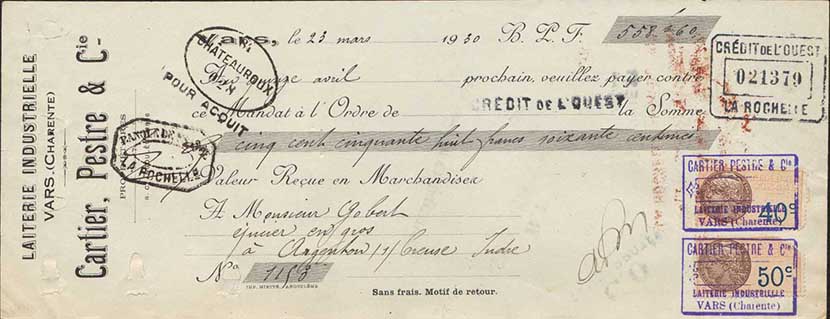 LAITERIE INDUSTRIELLE
VARS. (CHARENTE)
Cartier, Pestre & Cie
Vars, le 23 mars 1930 B. P. F. 558 60
Au quinze avril prochain, veuillez payer contre
ce Mandat à l'Ordre de CRÉDIT DE L'OUEST la Somme
cinq cent cinquante huit francs soixante centimes
Valeur Reçue en Marchandises
A Monsieur Gobert
épicier en gros
à Argenton s/ Creuse Indre
No 1153
IMP. MINITE, ANGOULÊME
Sans frais. Motif de retour.
CHATEAUROUX
POUR ACQUIT
BANQUE DE
LA ROCHELLE
CRÉDIT DE L'OUEST
021379
LA ROCHELLE
CARTIER PESTRE & Cie
40c
LAITERIE INDUSTRIELLE
VARS (Charente)
CARTIER PESTRE & Cie
50c
LAITERIE INDUSTRIELLE
VARS (Charente)